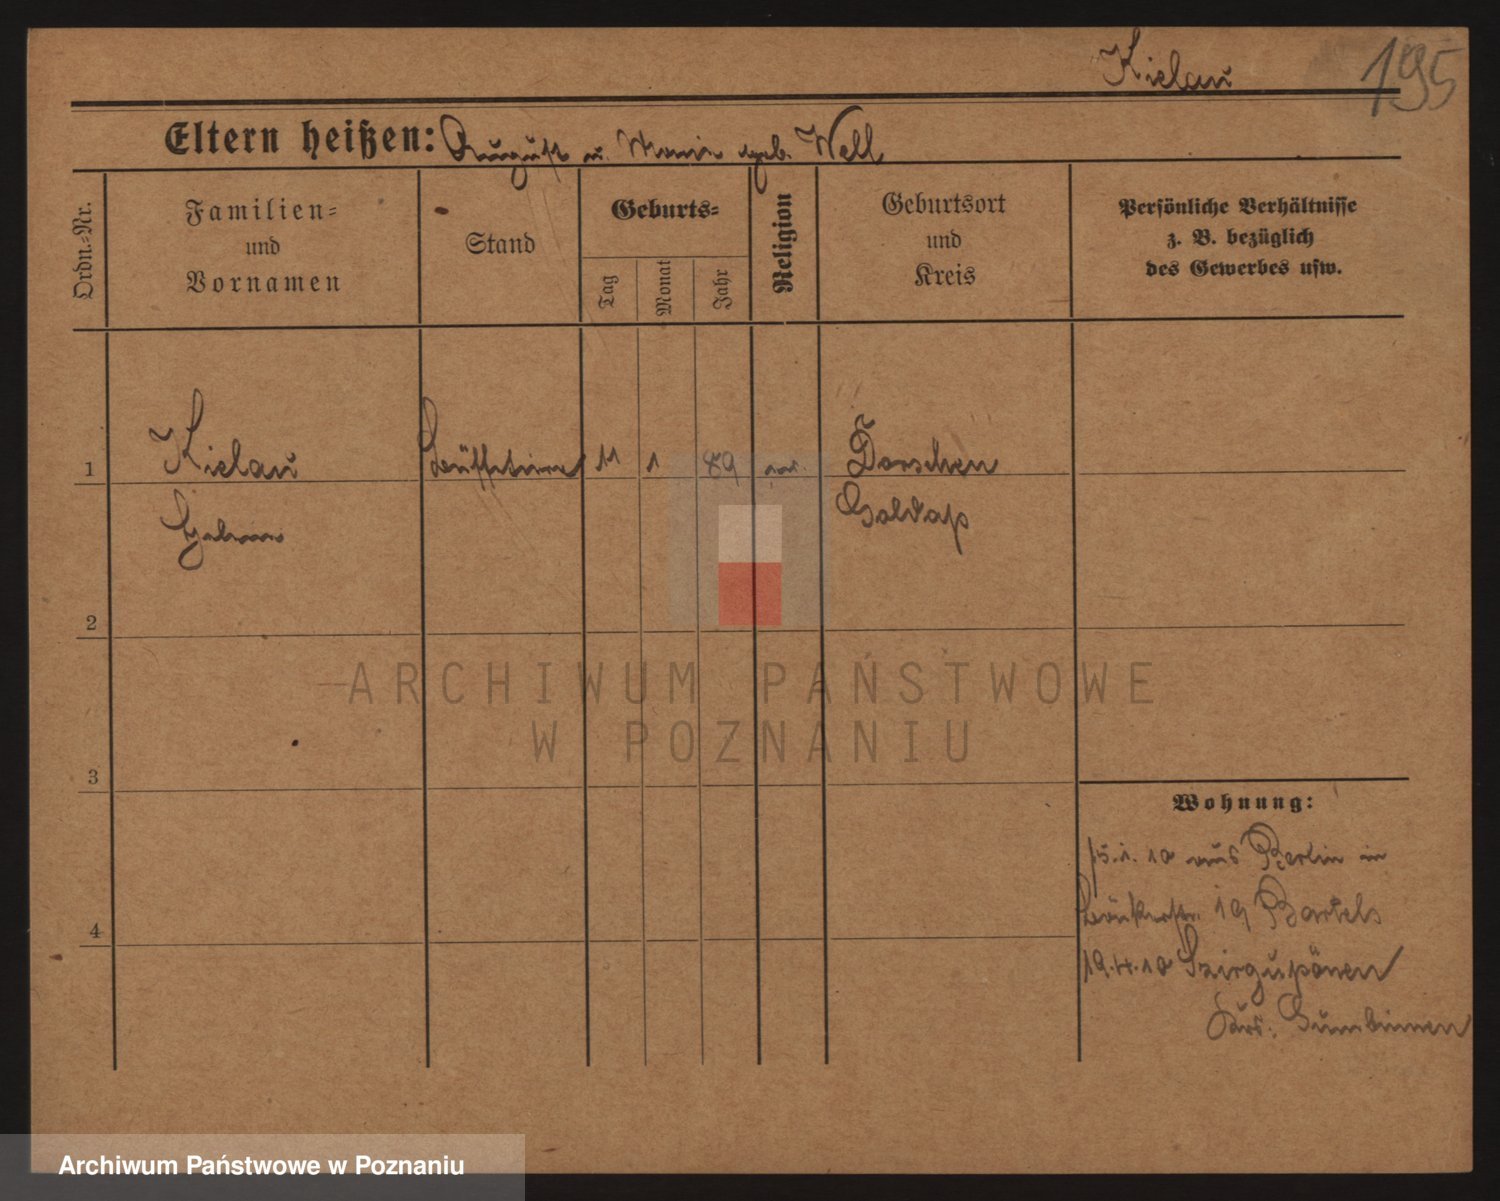 Kielau 195
Eltern heißen: August u. Marie geb. Well
Ordn.-Nr.
Familien-
und
Vornamen
Stand
Geburts-
Tag
Monat
Jahr
Religion
Geburtsort
und
Kreis
Persönliche Verhältnisse
z. B. bezüglich
des Gewerbes usw.
1 Kielau 11 1 89 Dorschen
Goldap
2
ARCHIWUM PAŃSTWOWE
W POZNANIU
3
Wohnung:
15.1.10 aus Berlin in
19 Bartels
4
19.4.10 Szirgupönen
Gumbinnen
Archiwum Państwowe w Poznaniu